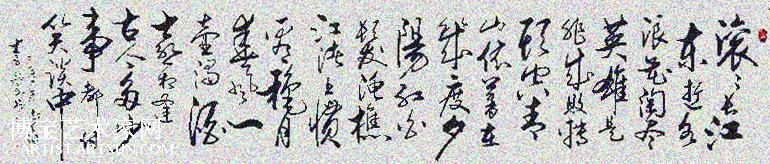 滚々长江
东逝水
浪花淘尽
英雄是
非成败转
头空青
山依旧在
几度夕
陽红白
髮渔樵
江渚上惯
看穐月
春风一
壶濁酒
喜相逢
古今多少
事都付
笑谈中
博宝艺术家网
ARTIST.ARTXUN.COM